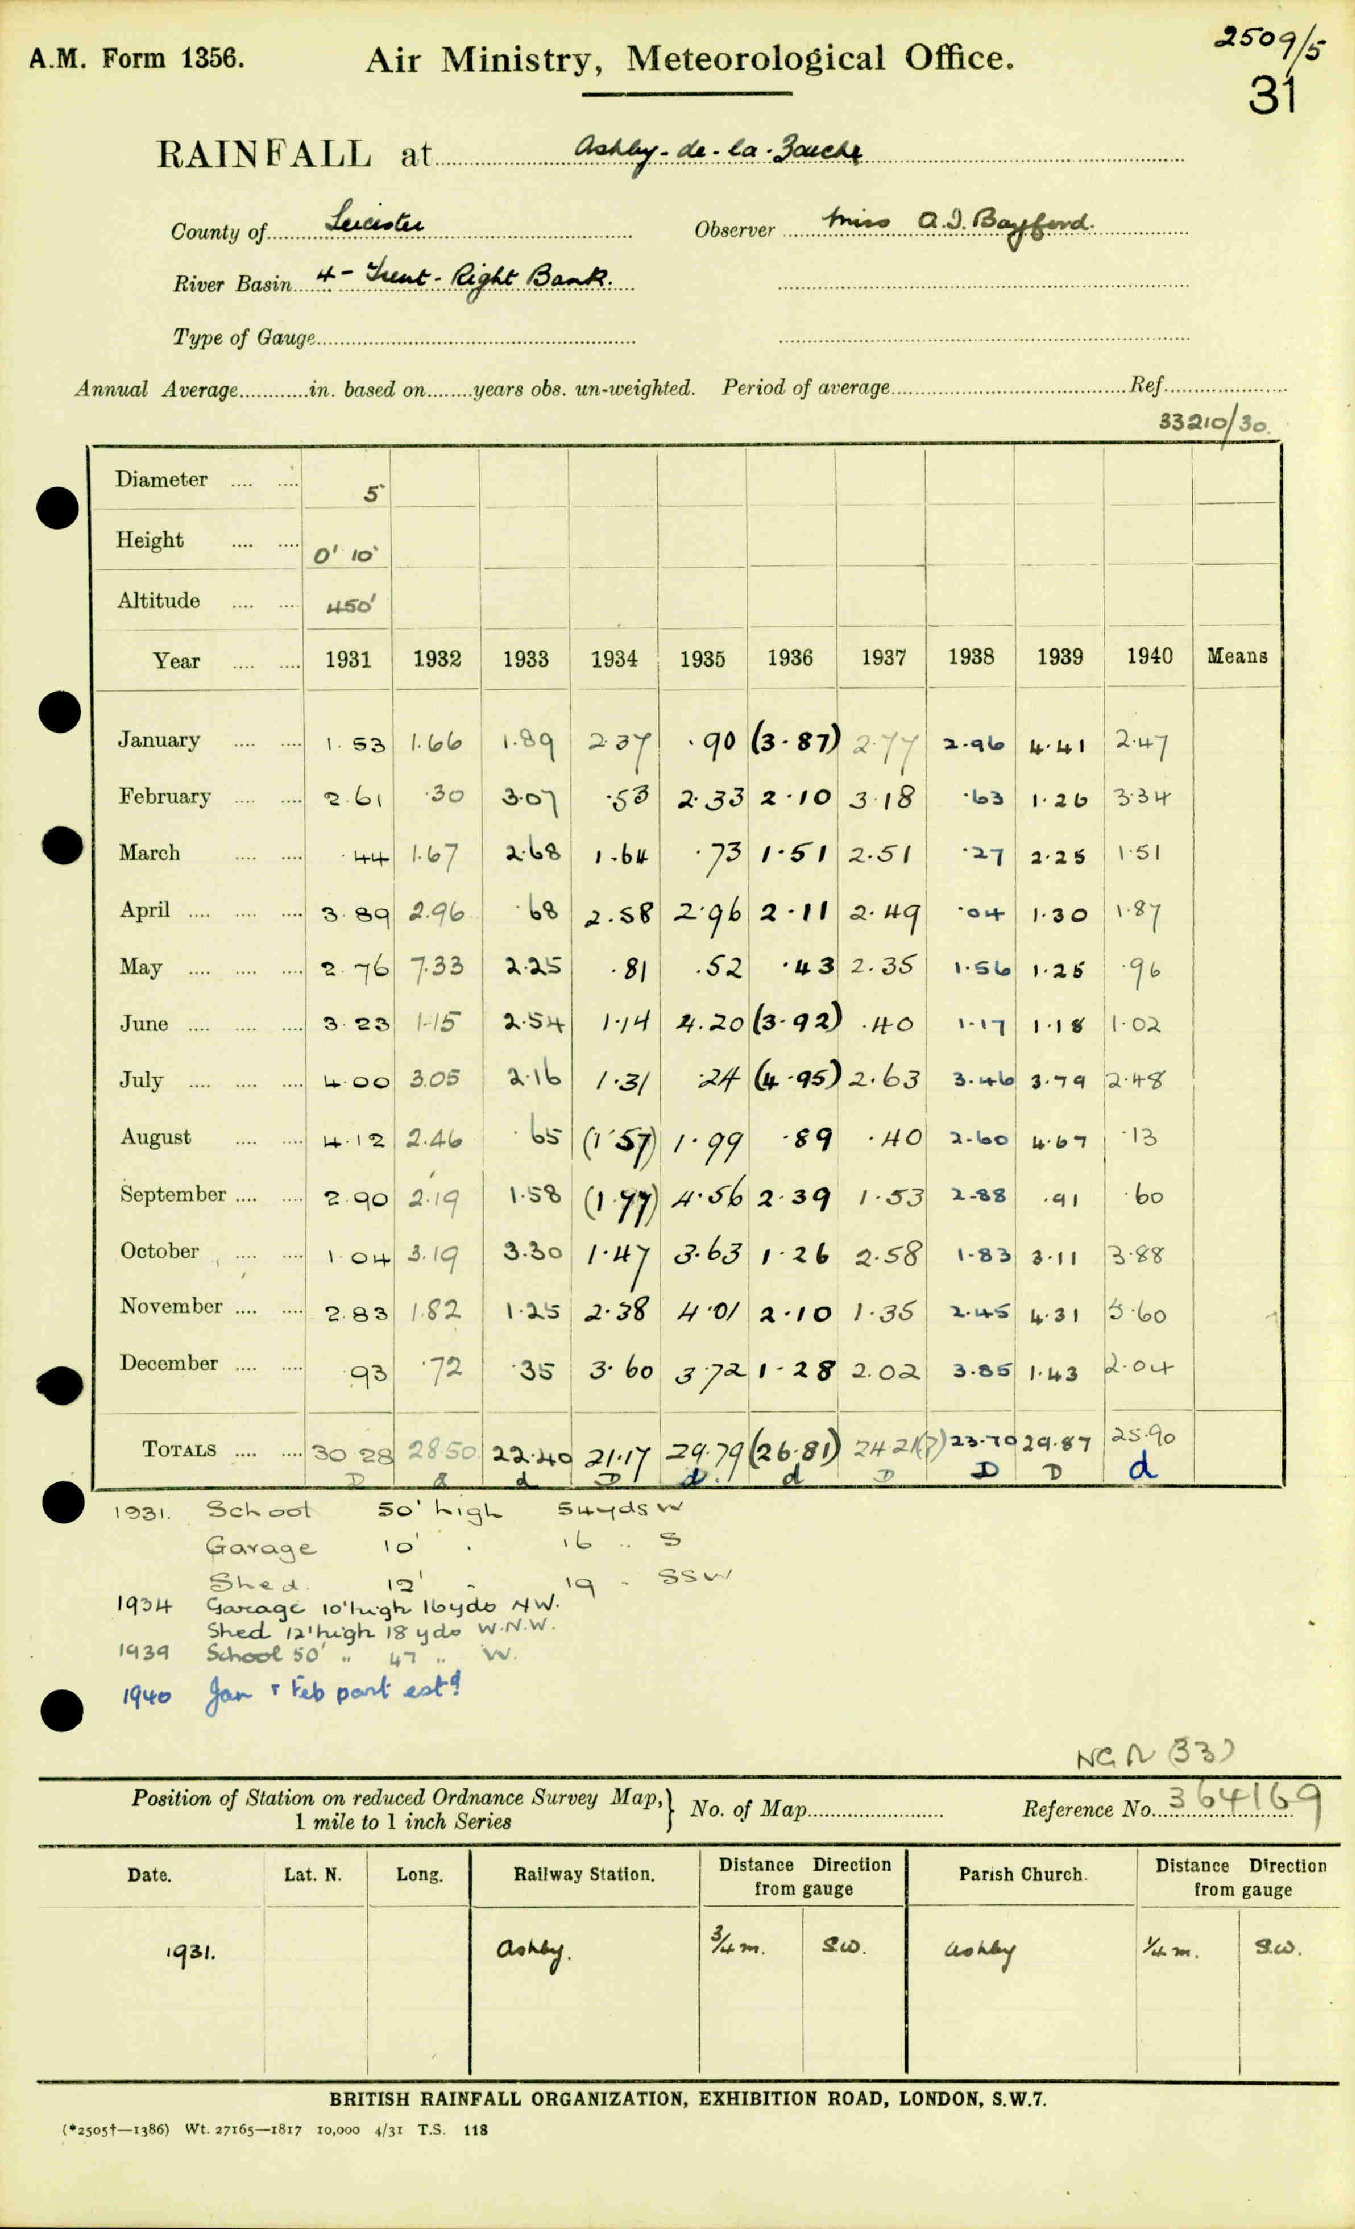 2509/5
A.M. Form 1356. Air Ministry, Meteorological Office.
31
RAINFALL at Ashby-de-la-Zouche
County of Leicester Observer Miss A.I. Bayford.
River Basin 4 - Trent - Right Bank.
Type of Gauge
Annual Average in. based on years obs. un-weighted. Period of average Ref.
33210/30.
Diameter 5"
Height 0' 10"
Altitude 450'
Year 1931 1932 1933 1934 1935 1936 1937 1938 1939 1940 Means
January 1.53 1.66 1.89 2.37 .90 (3.87) 2.77 2.96 4.41 2.47
February 2.61 .30 3.07 .53 2.33 2.10 3.18 .63 1.26 3.34
March .44 1.67 2.68 1.64 .73 1.51 2.51 .27 2.25 1.51
April 3.89 2.96 .68 2.58 2.96 2.11 2.49 .04 1.30 1.87
May 2.76 7.33 2.25 .81 .52 .43 2.35 1.56 1.25 .96
June 3.23 1.15 2.54 1.14 4.20 (3.92) .40 1.17 1.18 1.02
July 4.00 3.05 2.16 1.31 .24 (4.95) 2.63 3.46 3.79 2.48
August 4.12 2.46 .65 (1.57) 1.99 .89 .40 2.60 4.67 .13
September 2.90 2.19 1.58 (1.77) 4.56 2.39 1.53 2.88 .91 .60
October 1.04 3.19 3.30 1.47 3.63 1.26 2.58 1.83 3.11 3.88
November 2.83 1.82 1.25 2.38 4.01 2.10 1.35 2.45 4.31 5.60
December .93 .72 .35 3.60 3.72 1.28 2.02 3.85 1.43 2.04
TOTALS 30.28 28.50 22.40 21.17 29.79 (26.81) 24.21(?) 23.70 29.87 25.90
D d D d. d D D D d
1931. School 50' high 54yds W
Garage 10' " 16 " S
Shed. 12' " 19 " SSW
1934 Garage 10' high 16yds NW.
Shed 12' high 18 yds W.N.W.
1939 School 50' " 47 " W.
1940 Jan & Feb part estd
NGR (33)
Position of Station on reduced Ordnance Survey Map, 1 mile to 1 inch Series } No. of Map Reference No. 364169
Date. Lat. N. Long. Railway Station. Distance Direction from gauge Parish Church. Distance Direction from gauge
1931. Ashby. 3/4 m. S.W. Ashby 1/4 m. S.W.
BRITISH RAINFALL ORGANIZATION, EXHIBITION ROAD, LONDON, S.W.7.
(*2505†—1386) Wt. 27165—1817 10,000 4/31 T.S. 118